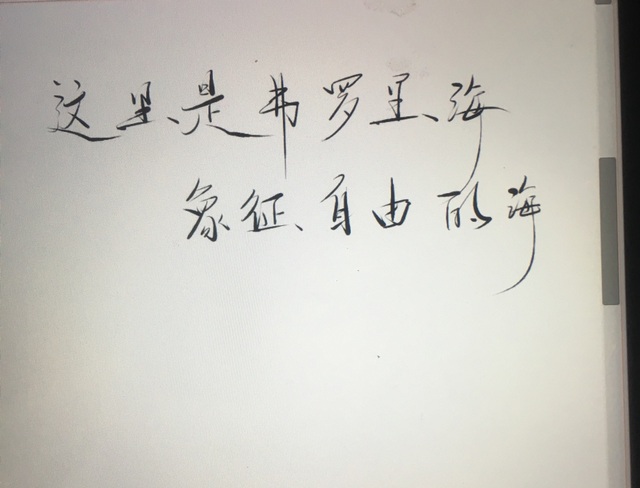 这里是弗罗里海
象征自由的海